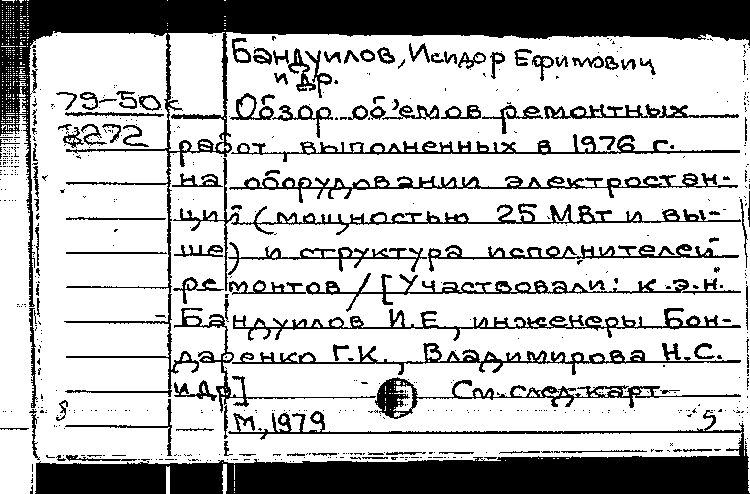 Бандуилов, Исидор Ефимович
и др.
79-50к
Обзор об'емов ремонтных
3272
работ, выполненных в 1976 г.
на оборудовании электростан-
ций (мощностью 25 МВт и вы-
ше) и структура исполнителей
ремонтов / [Участвовали: к.э.н.
Бандуилов И.Е., инженеры Бон-
даренко Г.К., Владимирова Н.С.
и др.]
См. след. карт.
М., 1979